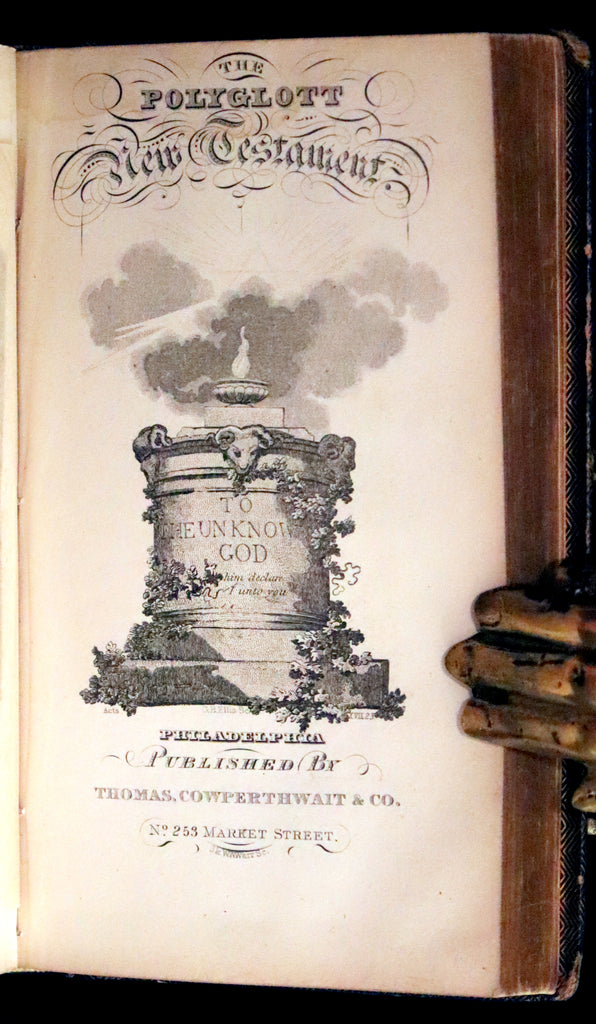 THE
POLYGLOTT
New Testament
TO
THE UNKNOW
GOD
him declare
I unto you
Acts
PHILADELPHIA
PUBLISHED BY
THOMAS, COWPERTHWAIT & CO.
No 253 MARKET STREET.